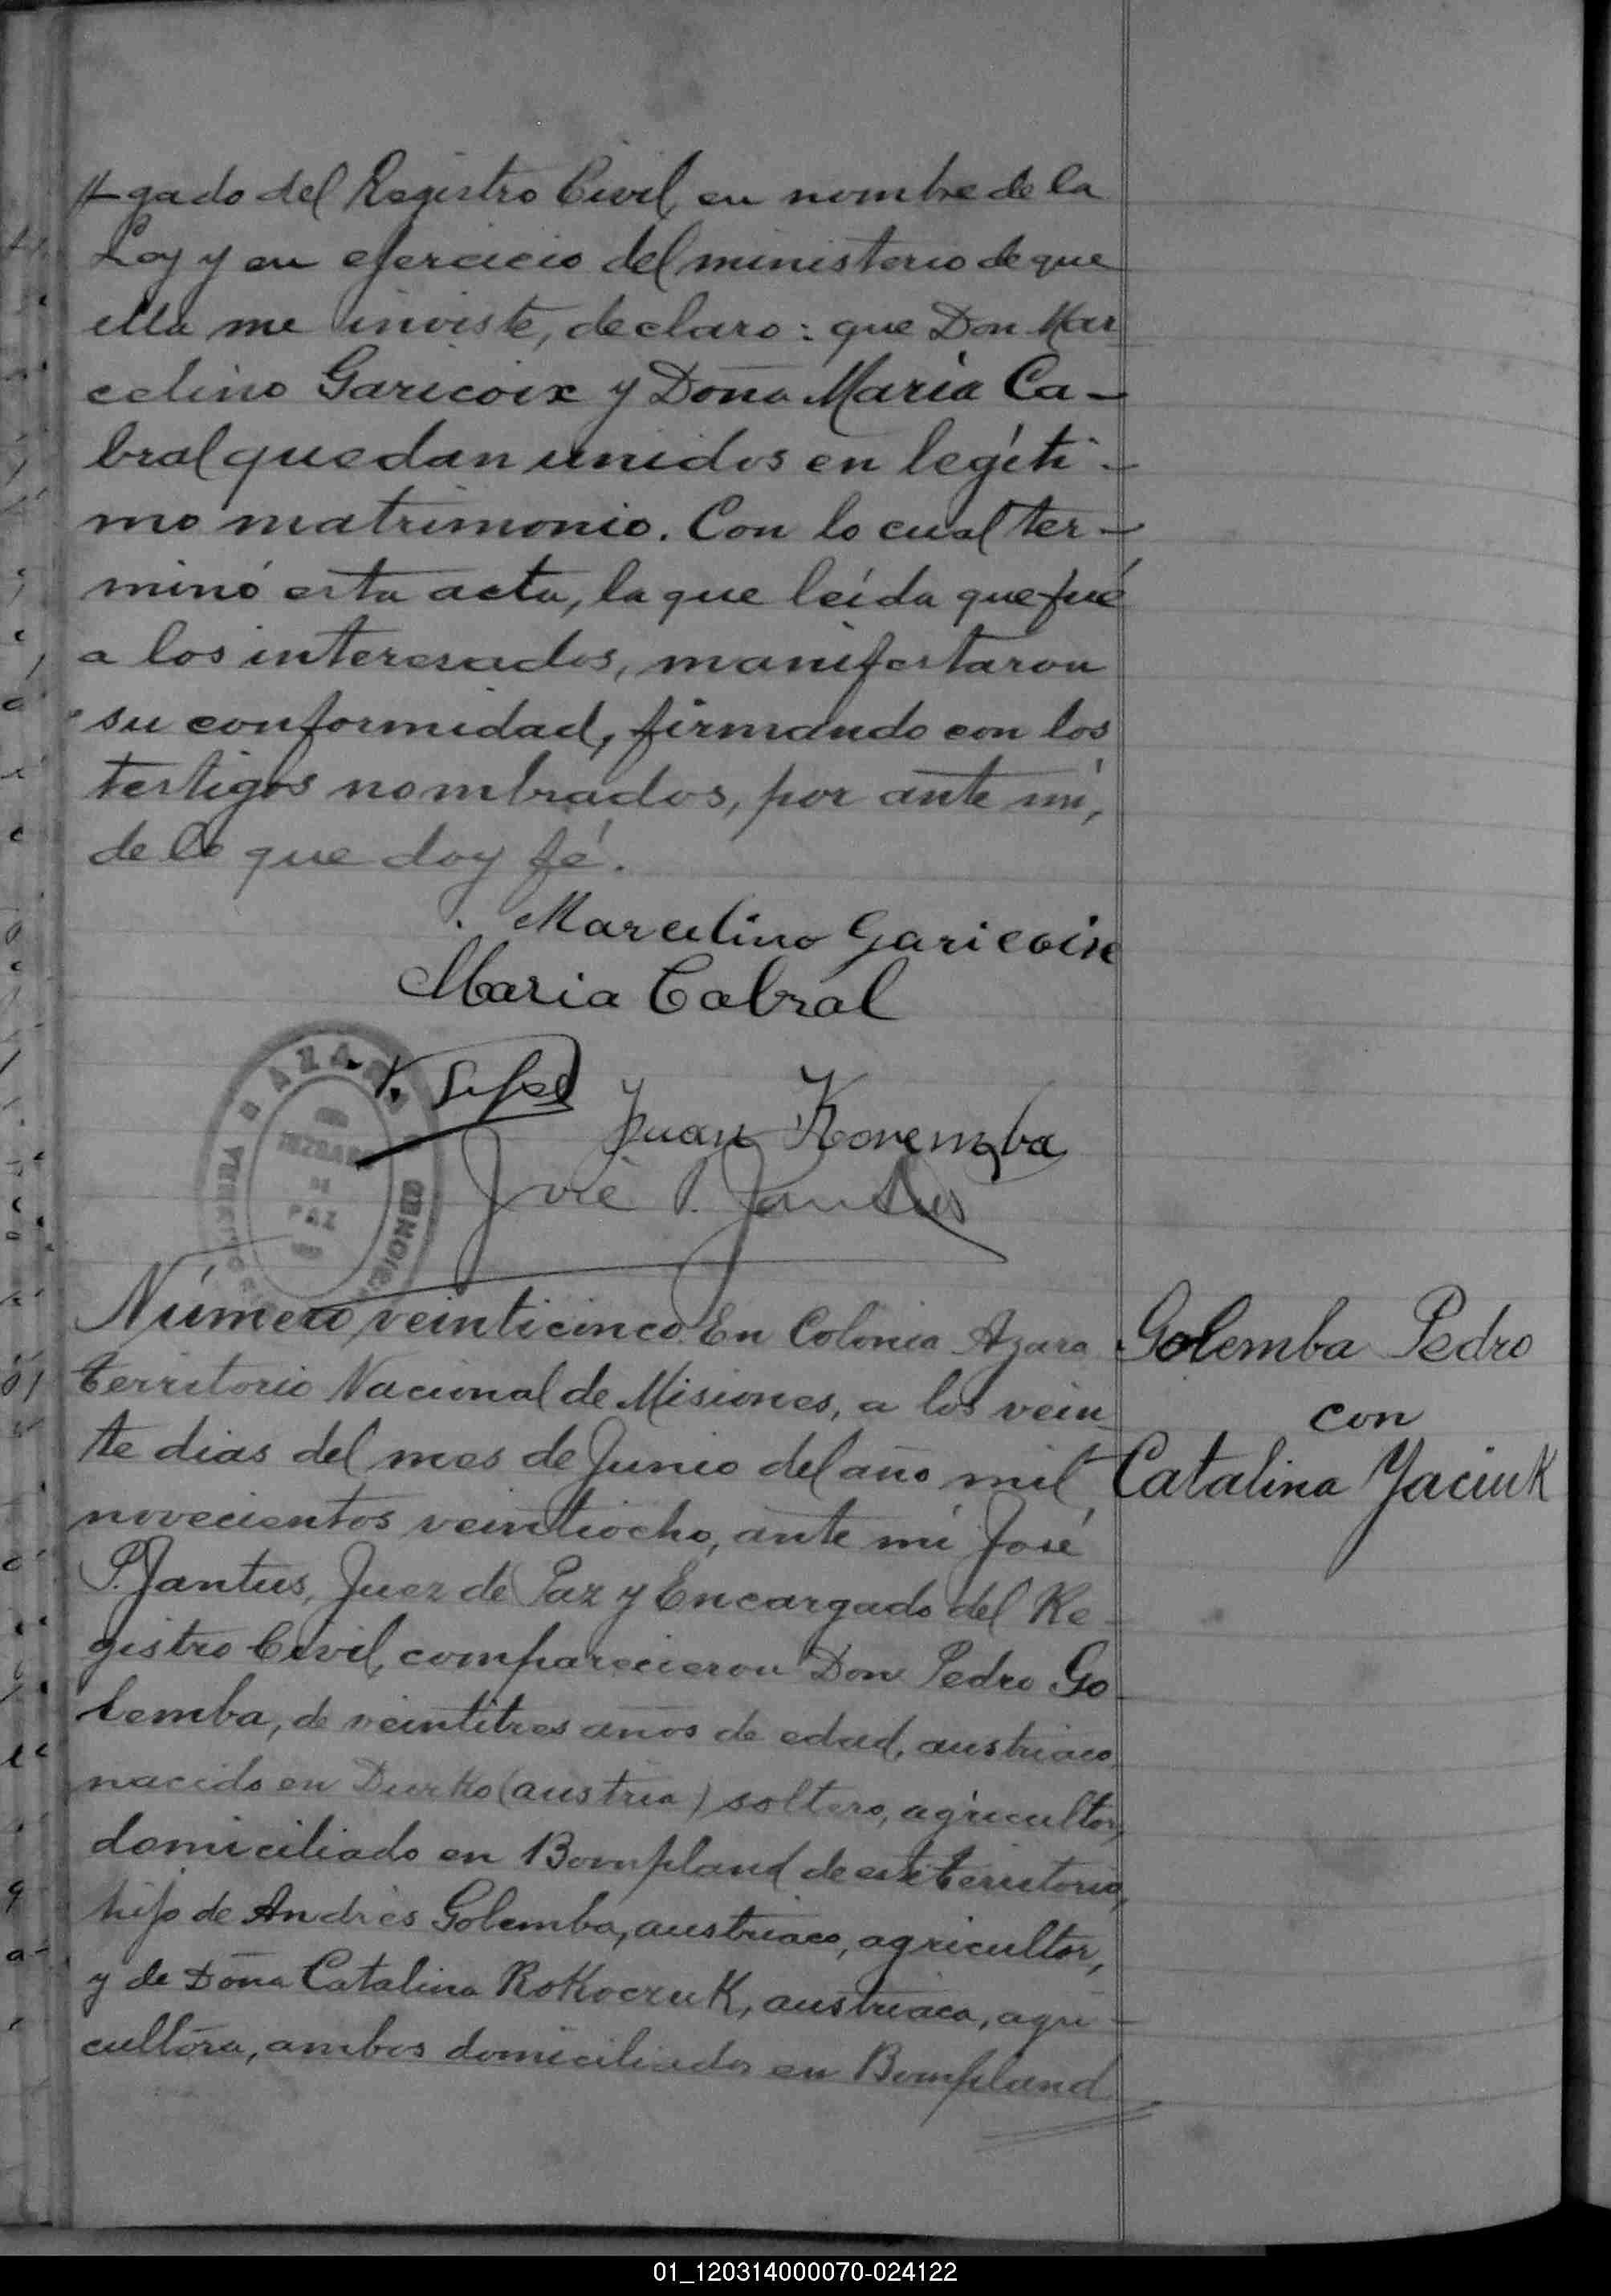 gado del Registro Civil, en nombre de la
Ley y en ejercicio del ministerio de que
ella me inviste, declaro: que Don Mar
celino Garicoix y Doña María Ca-
bral quedan unidos en legíti-
mo matrimonio. Con lo cual ter-
minó esta acta, la que leída que fué
a los interesados, manifestaron
su conformidad, firmando con los
testigos nombrados, por ante mí,
de lo que doy fé.
Marcelino Garicoix
Maria Cabral
Juan Koremba
José P. Jantus
AZARA
JUZGADO
DE
PAZ
MISIONES
Número veinticinco. En Colonia Azara
Territorio Nacional de Misiones, a los vein
te dias del mes de Junio del año mil
novecientos veintiocho, ante mí José
P. Jantus, Juez de Paz y Encargado del Re-
gistro Civil, comparecieron Don Pedro Go
lemba, de veintitres años de edad, austriaco,
nacido en (austria) soltero, agricultor,
domiciliado en Bompland de este territorio,
hijo de Andrés Golemba, austriaco, agricultor,
y de Doña Catalina RoKoczuK, austriaca, agri-
cultora, ambos domiciliados en Bompland
Golemba Pedro
con
Catalina YaciuK
01_120314000070-024122